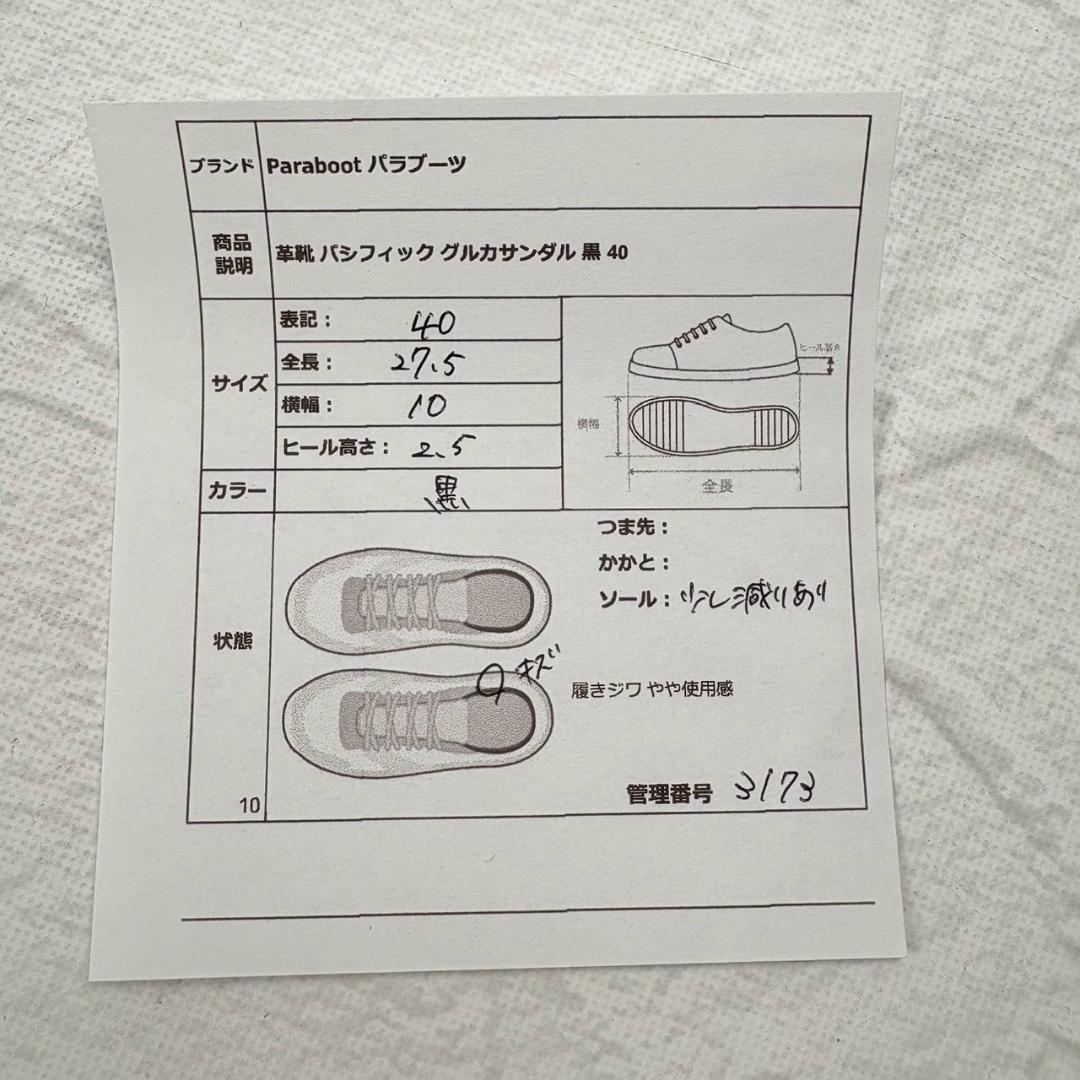 ブランド Paraboot パラブーツ
商品説明 革靴 パシフィック グルカサンダル 黒 40
サイズ
表記： 40
全長： 27.5
横幅： 10
ヒール高さ： 2.5
ヒール高さ
横幅
全長
カラー 黒
状態
つま先：
かかと：
ソール： 少し減りあり
キズ
履きジワ やや使用感
管理番号 3173
10